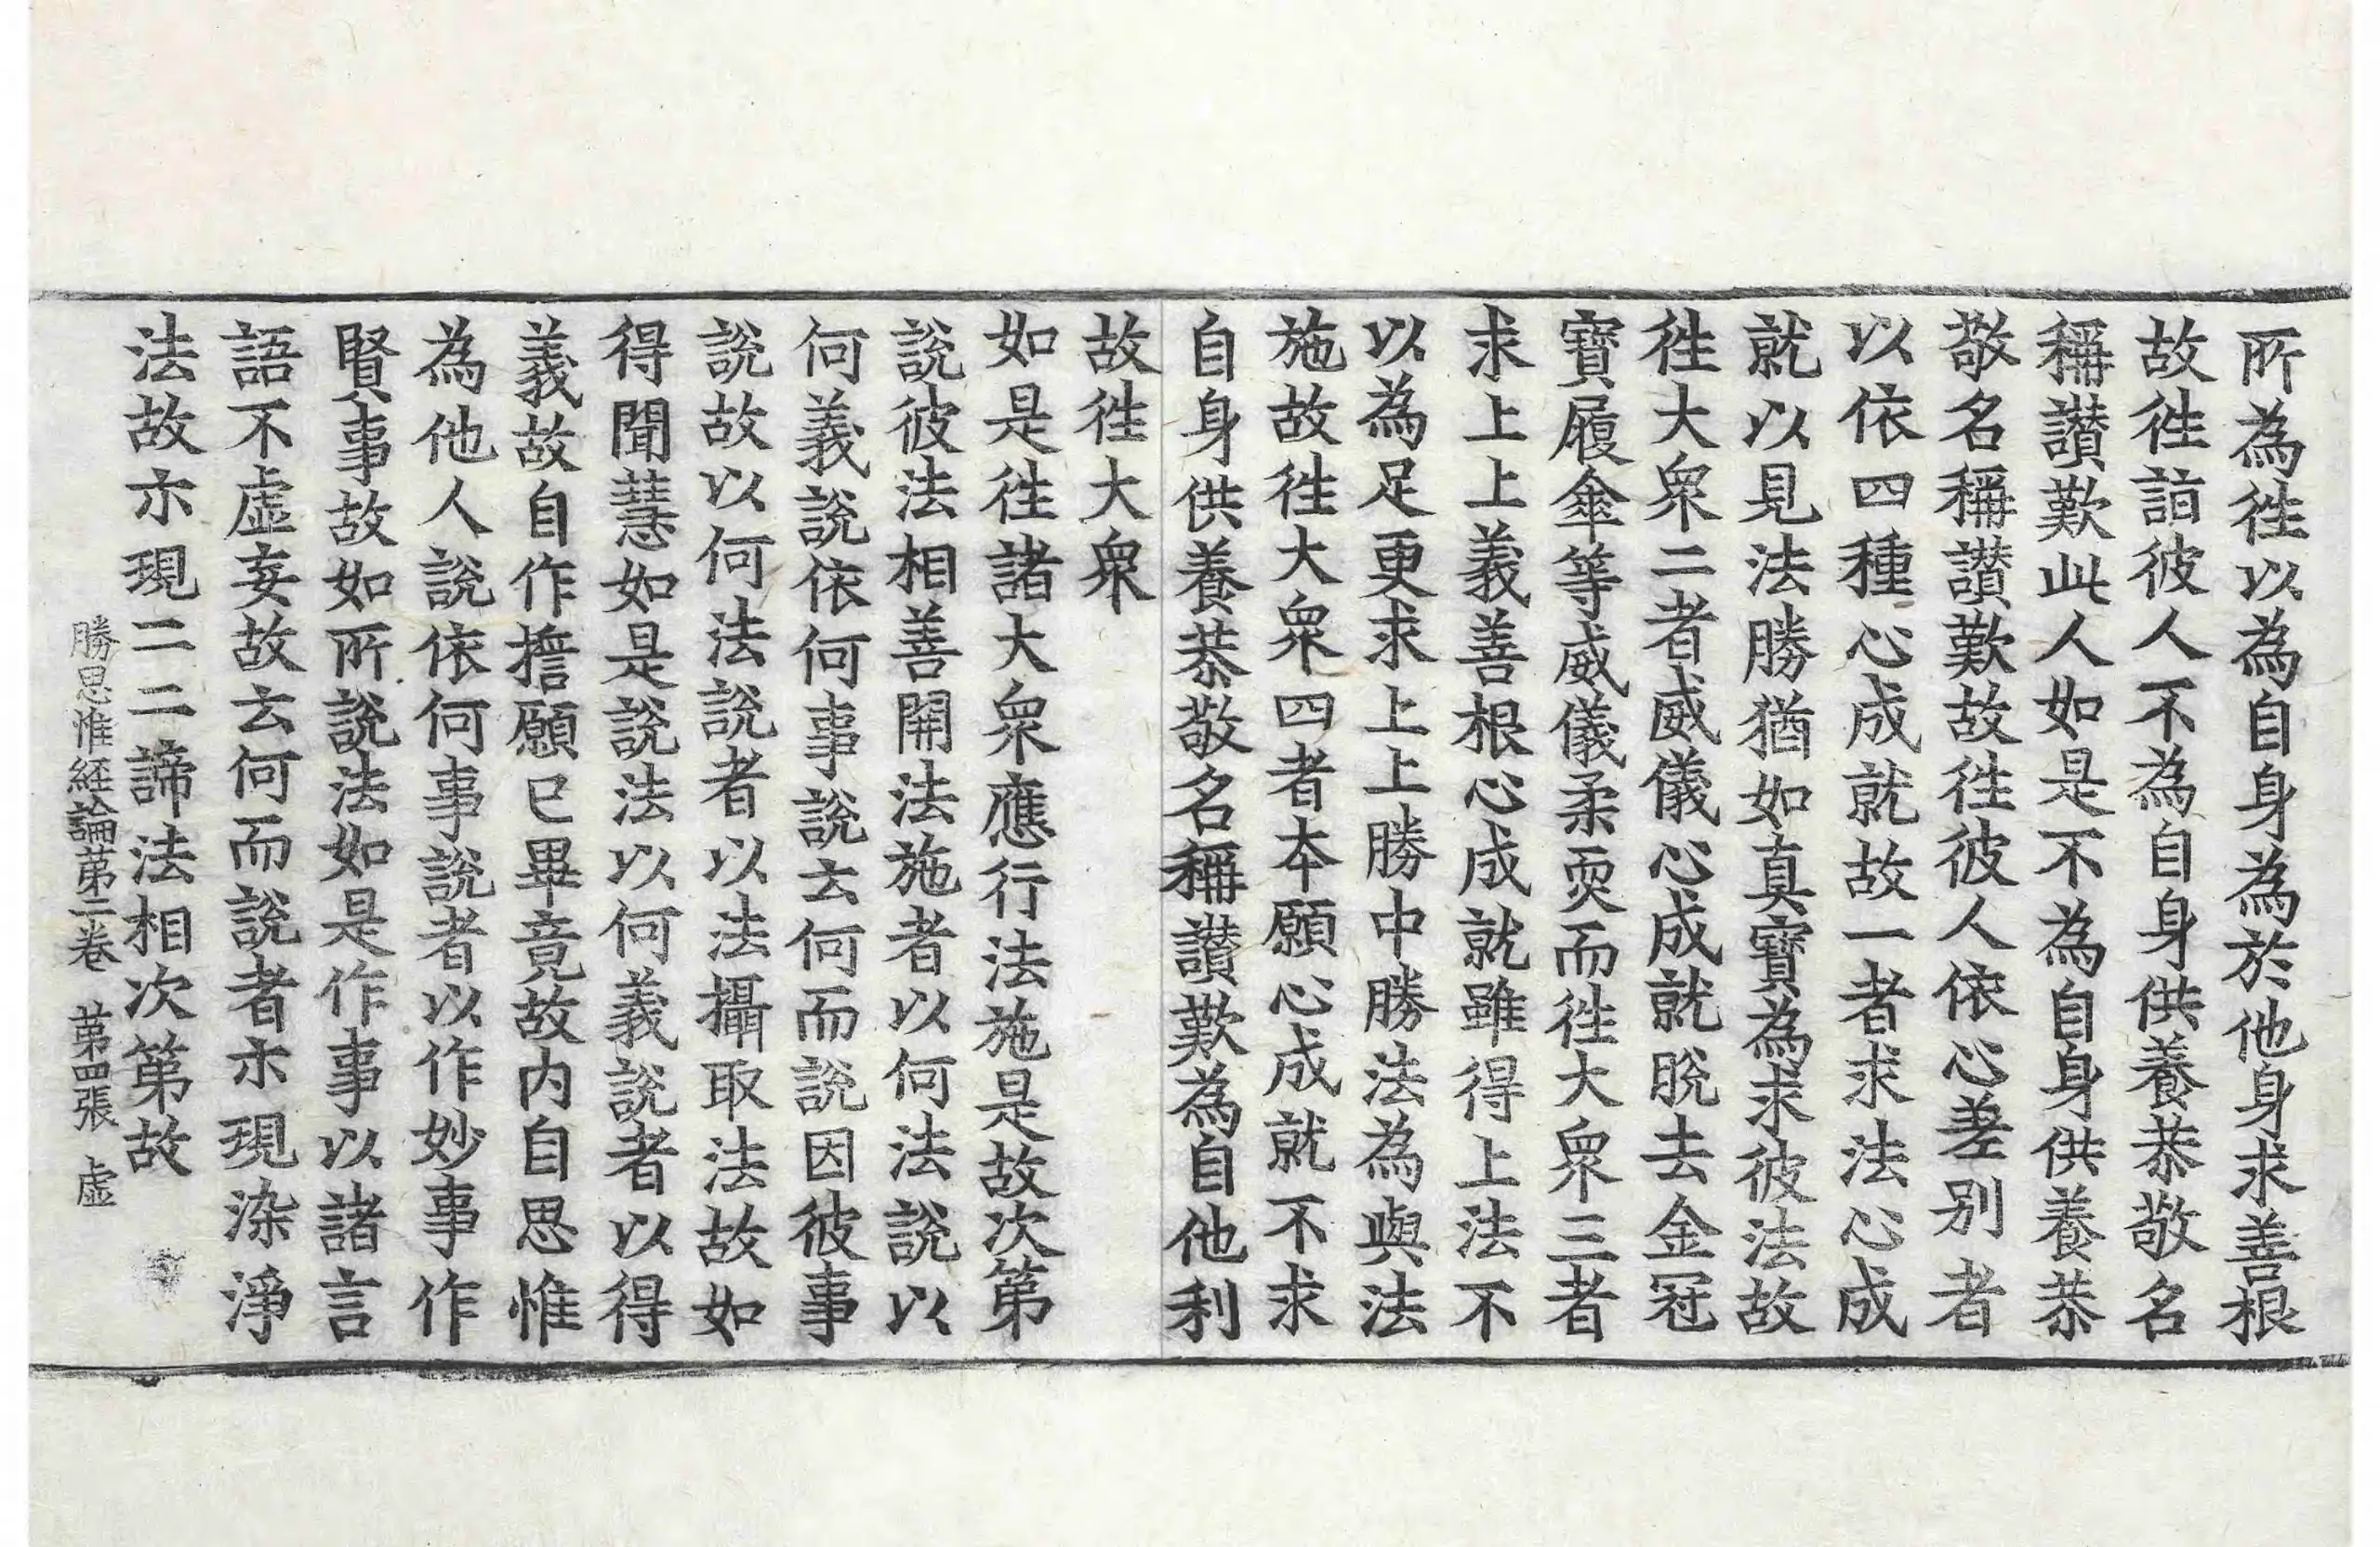 所為徃以為自身為於他身求善根
故徃詣彼人不為自身供養恭敬名
稱讃歎此人如是不為自身供養恭
敬名稱讃歎故徃彼人依心差别者
以依四種心成就故一者求法心成
就以見法勝猶如真寶為求彼法故
徃大衆二者威儀心成就脫去金冠
寶履傘等威儀柔耎而徃大衆三者
求上上義善根心成就雖得上法不
以為足更求上上勝中勝法為與法
施故徃大衆四者本願心成就不求
自身供養恭敬名稱讃歎為自他利
故徃大衆
如是徃諸大衆應行法施是故次第
說彼法相善開法施者以何法說以
何義說依何事說云何而說因彼事
說故以何法說者以法攝取法故如
得聞慧如是說法以何義說者以得
義故自作擔願已畢竟故内自思惟
為他人說依何事說者以作妙事作
賢事故如所說法如是作事以諸言
語不虛妄故云何而說者亦現染淨
法故亦現二二諦法相次第故
勝思惟經論第二卷 第四張 虛